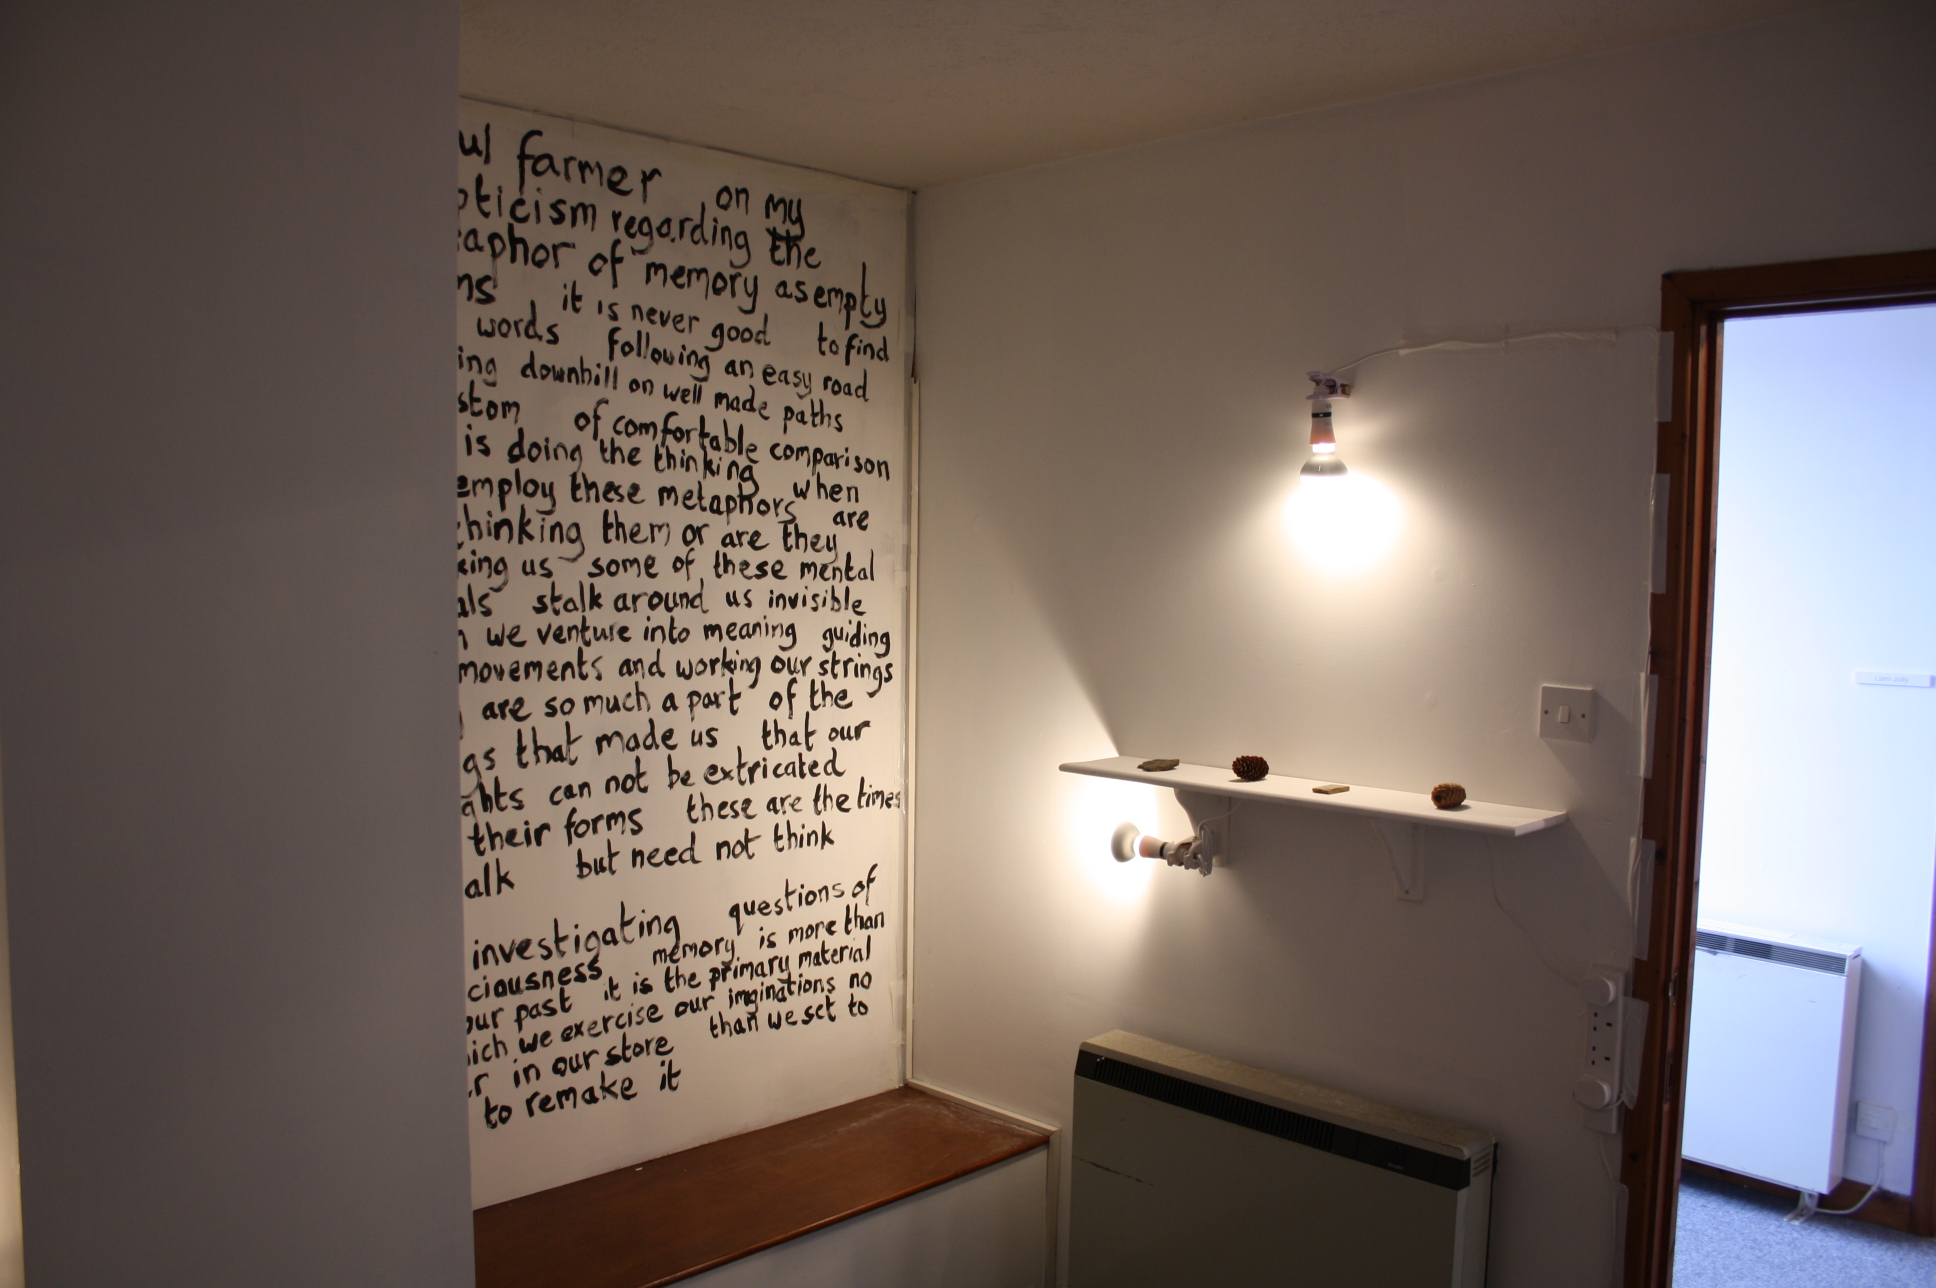 ul farmer on my
pticism regarding the
aphor of memory as empty
ms it is never good to find
words following an easy road
ing downhill on well made paths
stom of comfortable comparison
is doing the thinking when
employ these metaphors are
thinking them or are they
king us some of these mental
als stalk around us invisible
n we venture into meaning guiding
movements and working our strings
are so much a part of the
gs that made us that our
ghts can not be extricated
their forms these are the times
alk but need not think
investigating questions of
ciousness memory is more than
our past it is the primary material
ich we exercise our imginations no
r in our store than we set to
to remake it